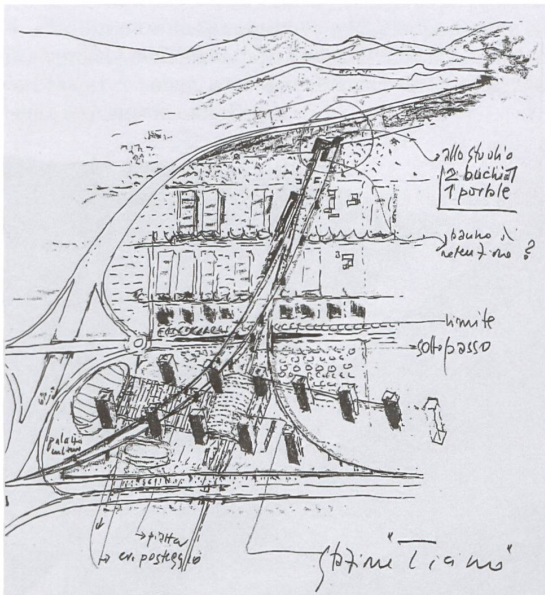 allo studio
2 buchi
1 portale
di
ritenzione ?
limite
sottopasso
palazzo
piazza
ev. posteggio
stazione "Ticino"